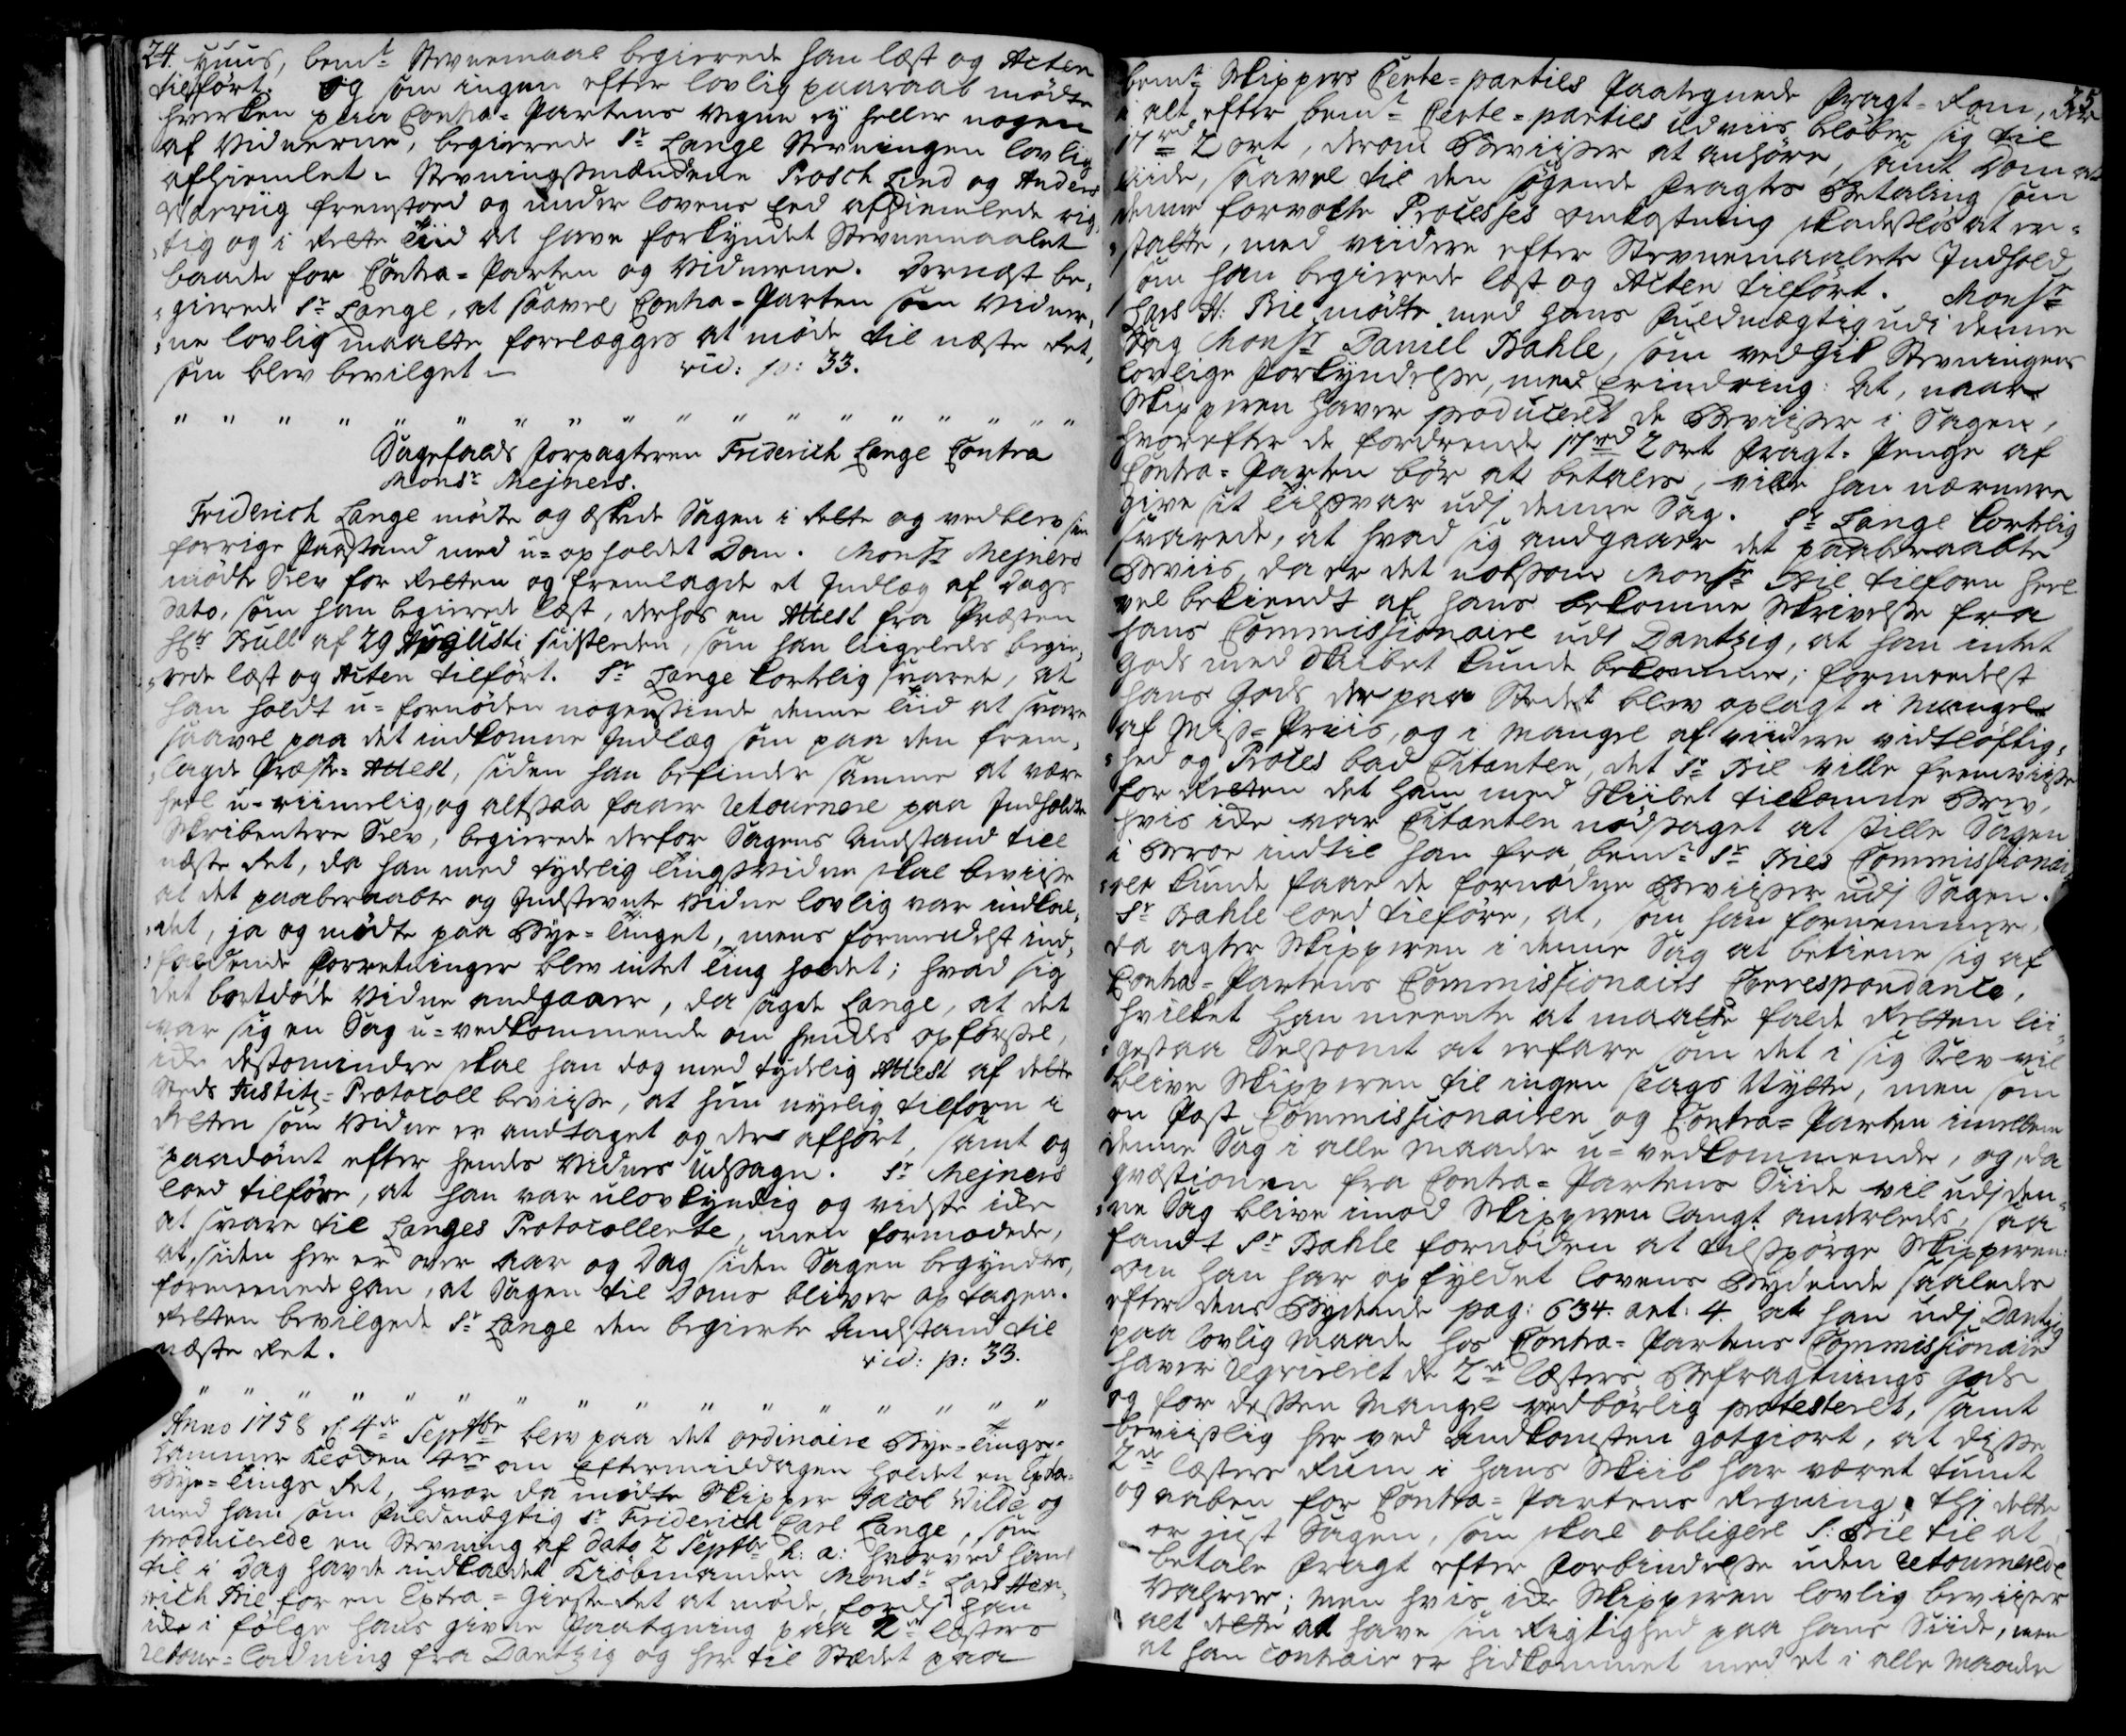 24. huus, bem.t Stevnemaal begierede han læst og Acten
tilført. Og som ingen efter lovlig paaraab mødte
hverken paa Contra-Partens Vegne ey heller nogen
af Vidnerne, begierede Sr Lange Stevningen lovlig
afhiemlet. Stevningsmændene Prosch Lind og Anders
Warvig fremstoed og under Lovens Eed afhiemlede rig¸
¸tig og i Rette Tiid at have forkyndet Stevnemaalet
baade for Contra-Parten og Vidnerne. Dernæst be¸
¸gierede Sr Lange, at saavel Contra-Parten som Vidner¸
¸ne lovlig maatte forelægges at møde til næste Ret,
som blev bevilget. vid: p: 33.
" " " " " " " " " " " " " " " " "
Sagefalds Forpagteren Friderich Lange Contra
Monsr Mejners.
Friderich Lange mødte og æskede Sagen i Rette og vedblev sin
forrige Paastand med u-opholdet Dom. Monsr Mejners
mødte Selv for Retten og fremlagde et Indlæg af Dags
Dato, som han begierede læst, derhos en Attest fra Præsten
Hr Bull af 29 Augusti sidstleden, som han liigeledes begie¸
¸rede læst og Acten tilført. Sr Lange kortelig svarede, at
han holdt u-fornøden nogensinde denne Tiid at svare
saavel paa det indkomne Indlæg som paa den frem¸
¸lagde Præste-Attest, siden han befinder samme at være
heel u-riimelig, og altsaa faaer retournere paa Indholdets
Skribentere Selv, begierede derfor Sagens Anstand till
næste Ret, da han med tydelig Tingsvidne skal beviise
at det paaberaabte og Indstevnte Vidne lovlig var indkal¸
¸det, ja og mødte paa Bye-Tinget, mens formedelst ind¸
¸faldende Forretninger blev intet Ting holdet; hvad sig
det bortdøde Vidne andgaaer, da sagde Lange, at det
var sig en Sag u-vedkommende om hendes opførsel,
icke destomindre skal han dog med tydelig Attest af dette
Steds Justitz-Protocoll beviise, at hun nyelig tilforn i
Retten som Vidne er andtaget og der afhørt, samt og
paadømt efter hendes Vidnes Udsagn. Sr Mejners
loed tilføre, at han var ulovkyndig og vidste icke
at svare til Langes Protocollerte, men formodede,
at, siden her er over Aar og Dag siden Sagen begyndtes,
formeenede han, at Sagen til Doms bliver optagen.
Retten bevilgede Sr Lange den begierte Anstand til
næste Ret. vid: p: 33.
" " " " " " " " " " " " " " " "
Anno 1758 d. 4de Septbr blev paa det ordinaire Bye-Tings-
Cammer Klocken 4re om Eftermiddagen holdet en Extra-
Bye-Tings Ret, hvor da mødte Skipper Jacob Wilde og
med ham som Fuldmægtig Sr Friderich Carl Lange, som
producerede en Stevning af dato 2 Septbr h: a: hvorved hand
til i Dag havde indkaldet Kiøbmanden Monsr Lars Hen¸
¸rich Bie for en Extra-Giesteret at møde, fordi han
icke i følge hans givne Paategning paa 2de læsters
retour-ladning fra Dantzig og her til Stædet paa
25
bemte Skippers Certe-parties Paategnede Fragt-Rom, der
i alt efter bemte Certe-parties Udviis beløber sig til
17 rd 2 ort, derom Beviiser at anhøre, samt Dom at
liide, saavel til den søgende Fragtes Betaling som
denne forvoldte Processes Omkostning skadesløs at er¸
¸statte, med viidere efter Stevnemaalets Indhold
som han begierede læst og Acten tilført. Monsr
Lars H: Bie mødte med hans Fuldmægtig udi denne
Sag Monsr Daniel Bahle, som vedgik Stevningens
lovlige Forkyndelse, med Erindring: At, naar
Skipperen haver produceret de Beviiser i Sagen,
hvorefter de fordrende 17 rd 2 ort Fragt-Penge af
Contra-Parten bør at betales, ville han nærmere
give sit Tilsvar udj denne Sag. Sr Lange kortelig
svarede, at hvad sig andgaaer det paaberaabte
Beviis, da er det noksom Monsr Bie tilforn heel
vel bekiendt af hans bekomne Skrivelse fra
hans Commissionaire udi Dantzig, at han intet
Gods med Skibet kunde bekomme; formedelst
hans Gods der paa Stedet blev oplagt i Mangel
af Priis, og i Mangel af viidere vidtløftig¸
¸hed og Proces bad Citanten, det Sr Bie ville fremviise
for Retten det ham med Skibet tilkomne Brev,
hvis icke var Citanten nødsaget at stille Sagen
i Beroe indtil han fra bemte Sr Bies Commissionai¸
¸rer kunde faae de fornødne Beviiser udj Sagen.
Sr Bahle loed tilføre, at, som han fornemmer,
da agter Skipperen i denne Sag at betiene sig af
Contra-Partens Commissionairs Correspondance,
hvilket han meente at maatte falde Retten lii¸
¸gesaa Selsomt at erfare som det i sig Selv vil
blive Skipperen til ingen slags Nytte, men som
en Post Commissionairen og Contra-Parten imellem
denne Sag i alle Maader u-vedkommende, og, da
qvæstionen fra Contra-Partens Siide vil udj den¸
¸ne Sag blive imod Skipperen langt anderledes, saa
fandt Sr Bahle fornøden at tilspørge Skipperen:
Om han har opfyldet Lovens Bydende saaledes
efter dens Bydende pag: 634. art: 4. at han udj Dantzig
paa lovlig Maade hos Contra-Partens Commissionair
haver reqvireret de 2de læsters Befragtnings Gods
og for dessen Mangel vedbørlig protesteret, samt
beviislig her ved Andkomsten gotgiort, at disse
2de læsters Rum i hans Skiib har været tomt
og aaben for Contra-Partens Regning. Thi dette
er just Sagen, som skal obligere S: Bie til at
betale Fragt efter Forbindelse uden retournerede
Vahrer; Men hvis icke Skipperen lovlig beviiser
alt dette at have sin Rigtighed paa hans Siide, men
at han contrair er hidkommet med et i alle Maader